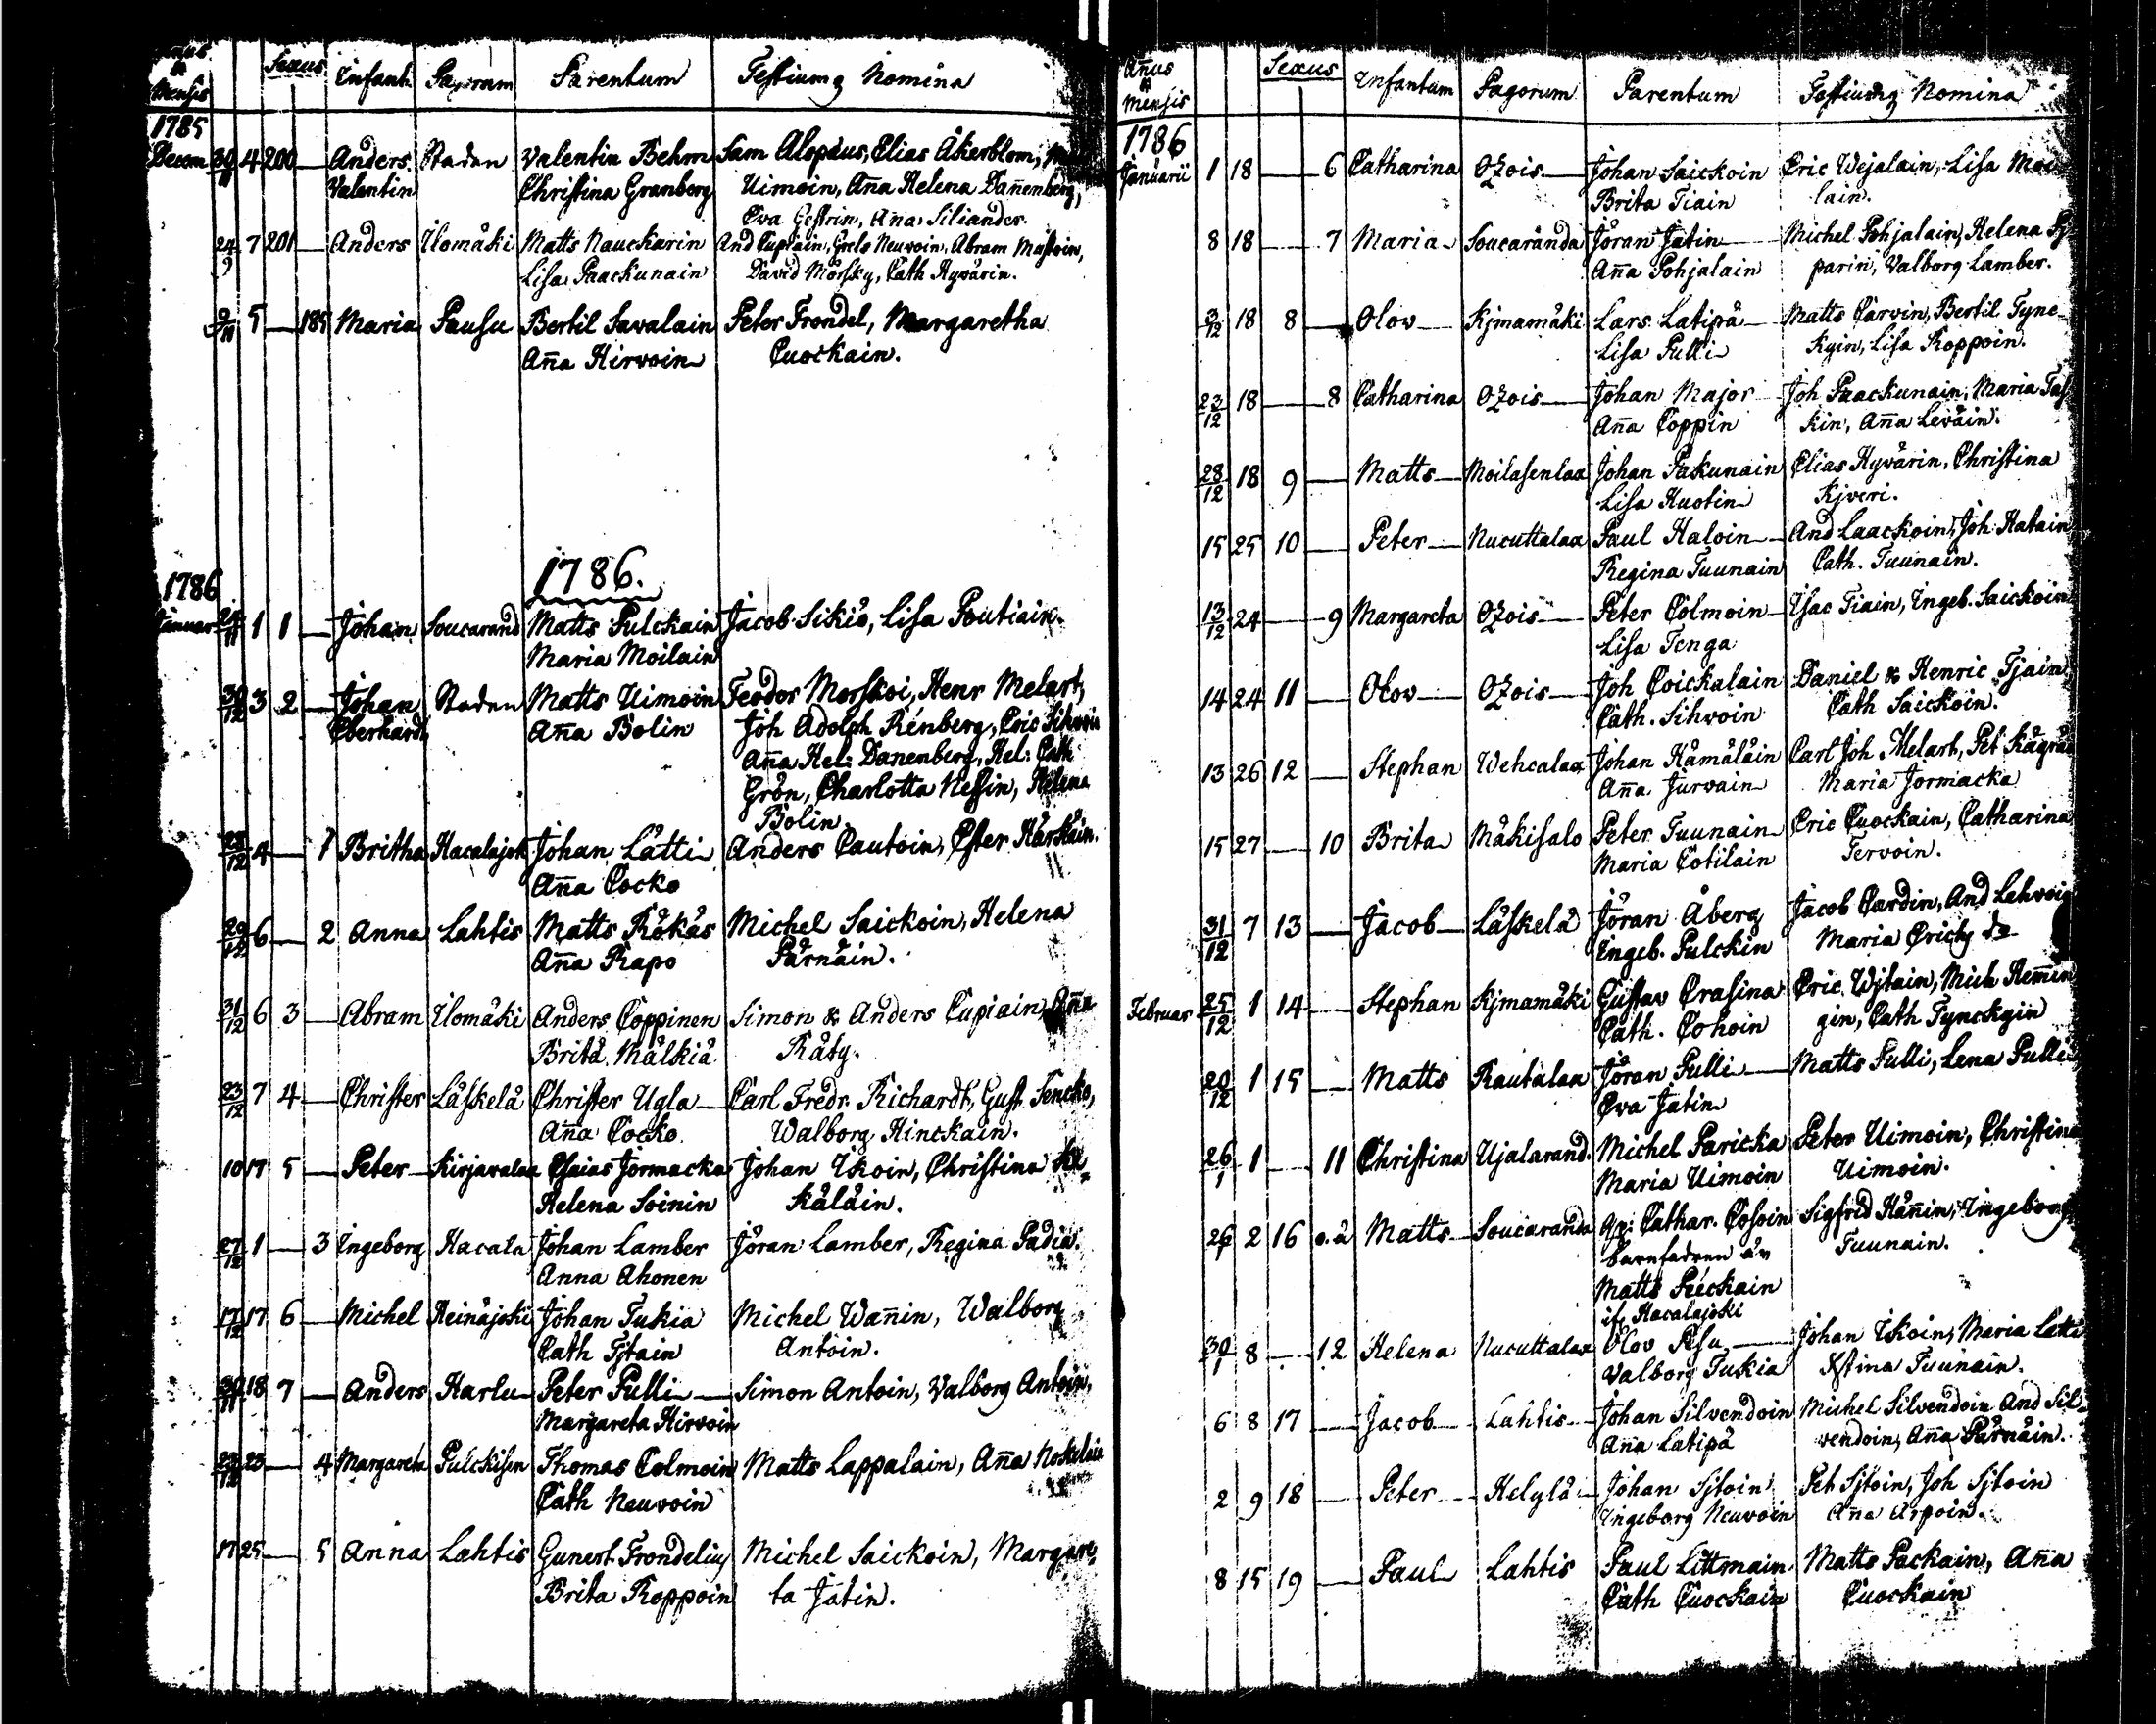 Sexus
Mensis Infant Pagorum Parentum Testiumq Nomina
1785
Decem 30/11 4 200 — Anders Staden Valentin Behm Sam Alopæus, Elias Åkerblom,
Valentin Christina Granberg Uimoin, Aña Helena Dañenberg,
Eva Gestrin, Aña Siliander
24/9 7 201 — Anders Ilomäki Matts Nauckarin And Cupiain, Grels Neuvoin, Abram Mustoin,
Lisa Paackunain David Mörsky, Cath Hyvärin.
9/11 5 — 185 Maria Pausu Bertil Savalain Peter Frondel, Margaretha
Aña Hirvoin Cuockain.
1786.
1786
Januar 24/11 1 1 — Johan Soucarand Matts Pulckain Jacob Sikiö, Lisa Poutiain.
Maria Moilain
30/12 3 2 — Johan Staden Matts Uimoin Feodor Morskoi, Henr Melart,
Eberhardt Aña Bolin Joh Adolph Rénberg, Eric Sihvoin
Aña Hel: Danenberg, Hel: Cath
Grön, Charlotta Nessin, Helena
Bolin.
23/12 4 — 1 Britha Hacalajok Johan Lätti Anders Cautoin, Ester Härkäin.
Aña Cocko
29/12 6 — 2 Anna Lahtis Matts Räkäs Michel Saickoin, Helena
Aña Rapo Pärnäin.
31/12 6 3 — Abram Ilomäki Anders Coppinen Simon & Anders Cupiain, Aña
Brita Mälkiä Räty.
23/12 7 4 — Christer Läskelä Christer Ugla — Carl Fredr. Richardt, Gust. Tencko,
Aña Cocko. Walborg Hinckain.
10 17 5 — Peter Kirjavalax Esaias Jormacka Johan Ikoin, Christina
Helena Soinin käläin.
27/12 1 — 3 Ingeborg Hacala Johan Lamber Jöran Lamber, Regina Padia.
Anna Ahonen
17/12 17 6 — Michel Reinäjoki Johan Tukia Michel Wañin, Walborg
Cath Tjtain Antoin.
30/11 18 7 — Anders Harlu Peter Pulli — Simon Antoin, Valborg Antoin,
Margareta Hirvoin
23/12 23 — 4 Margareta Pulckisen Thomas Colmoin Matts Lappalain, Aña Noskelain
Cath Neuvoin
17 25 — 5 Anna Lahtis Gunert Frondelius Michel Saickoin, Margare
Brita Roppoin ta Jatin.
Añus
& Sexus
Mensis Infantum Pagorum Parentum Testiumq Nomina
1786
Januarii 1 18 — 6 Catharina Ozois — Johan Saickoin Eric Wejalain, Lisa Moi
Brita Tiain lain.
8 18 — 7 Maria Soucaranda Jöran Jatin — Michel Pohjalain, Helena
Aña Pohjalain parin, Valborg Lamber.
3/12 18 8 — Olov — Kjmamäki Lars Latipä — Matts Carvin, Bertil Tyne
Lisa Pulli kyin, Lisa Roppoin.
23/12 18 — 8 Catharina Ozois — Johan Major Joh Paackunain, Maria
Aña Coppin kin, Aña Leväin.
28/12 18 9 — Matts — Moilasenlax Johan Pakunain Elias Hyvärin, Christina
Lisa Huotin Kjveri.
15 25 10 — Peter — Nucuttalax Paul Haloin — And Laackoin, Joh Hatain
Regina Tuunain Cath. Tuunain.
13/12 24 — 9 Margareta Ozois — Peter Colmoin — Isac Tiain, Ingeb. Saickoin
Lisa Tenga
14 24 11 — Olov — Ozois — Joh Coickalain Daniel & Henric Tjain
Cath. Sihvoin Cath Saickoin.
13 26 12 — Stephan Wehcalax Johan Hämäläin Carl Joh Melart, Pet
Aña Jurvain Maria Jormacka
15 27 — 10 Brita Mäkisalo Peter Tuunain Eric Cuockain, Catharina
Maria Cotilain Tervoin.
31/12 7 13 — Jacob — Läskelä Jöran Åberg Jacob Cardin, And Lahvoin
Ingeb. Pulckin Maria
Februar 25/12 1 14 — Stephan Kjmamäki Gustav Crasina Eric Wjtain, Mich Remin
Cath. Cohoin gin, Cath Tynckyin
20/12 1 15 — Matts Rautalax Jöran Pulli — Matts Pulli, Lena Pulli
Eva Jatin
26/1 1 — 11 Christina Ujalarand. Michel Paricka Peter Uimoin, Christina
Maria Uimoin Uimoin.
26/1 2 16 o.ä Matts Soucaranda Cathar. Cosoin Sigfrid Häñin, Ingeborg
barnfadren är Tuunain.
Matts Peickain
Hacalajoki
30/1 8 — 12 Helena Nucuttalax Olov Pesu — Johan Ikoin, Maria Lätti
Valborg Tukia Xstina Tuunain.
6 8 17 — Jacob — Lahtis — Johan Silvendoin Michel Silvendoin And Sil
Aña Latipä vendoin, Aña Pärnäin.
2 9 18 — Peter — Helylä — Johan Sjtoin Pet Sjtoin, Joh Sjtoin
Ingeborg Neuvoin Aña Arpoin.
8 15 19 — Paul Lahtis Paul Littmain Matts Packain, Aña
Cath Cuockain Cuockain